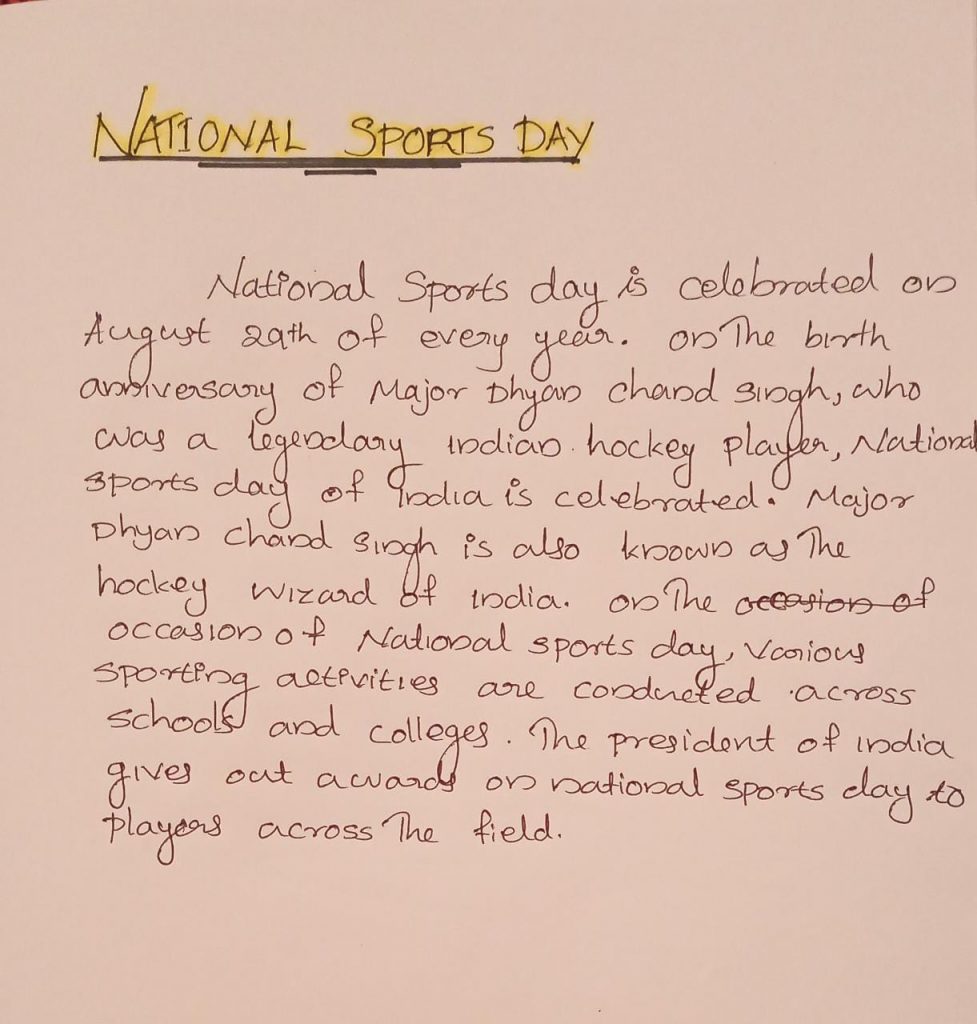 NATIONAL SPORTS DAY
National Sports day is celebrated on
August 29th of every year. on The birth
anniversary of Major Dhyan chand singh, who
was a legendary indian hockey player, National
sports day of India is celebrated. Major
Dhyan chand singh is also known as The
hockey wizard of india. on The occasion of
occasion of National sports day, various
sporting activities are conducted across
schools and colleges. The president of india
gives out awards on national sports day to
players across The field.